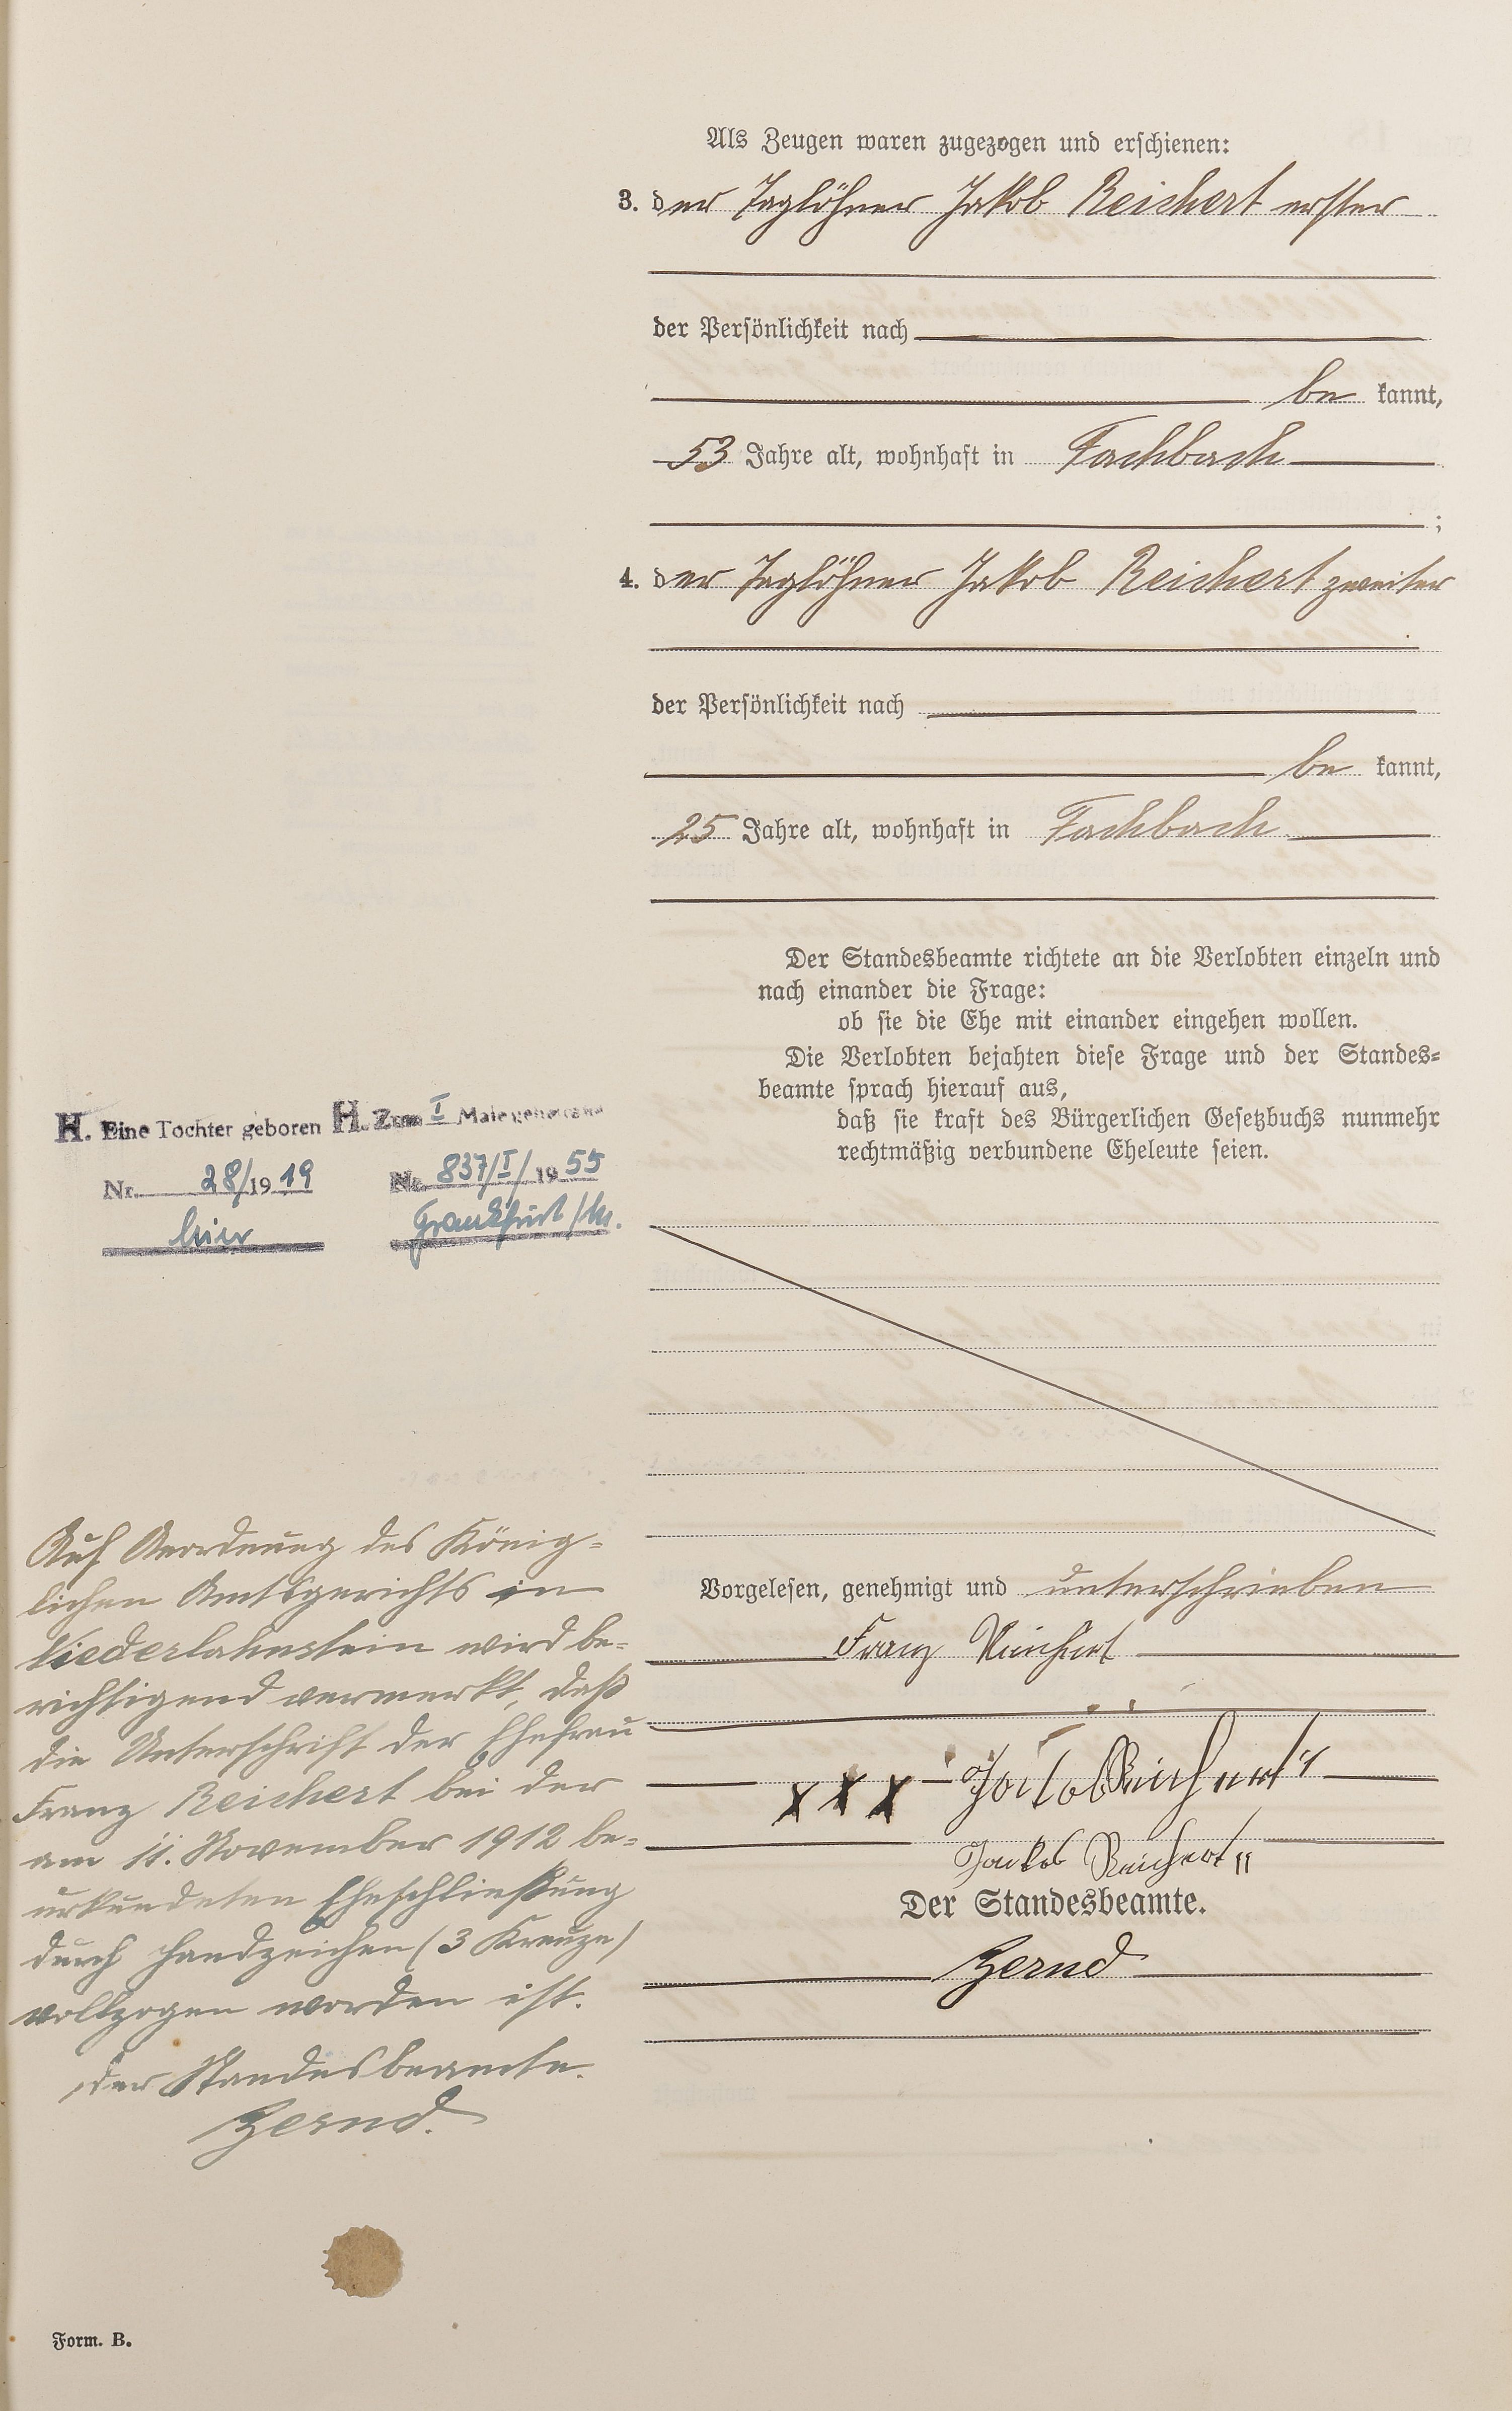 Als Zeugen waren zugezogen und erschienen:
3. der Taglöhner Jakob Reichert erster
der Persönlichkeit nach
be kannt,
53 Jahre alt, wohnhaft in Fachbach
;
4. der Taglöhner Jakob Reichert zweiter
der Persönlichkeit nach
be kannt,
25 Jahre alt, wohnhaft in Fachbach
Der Standesbeamte richtete an die Verlobten einzeln und
nach einander die Frage:
ob sie die Ehe mit einander eingehen wollen.
Die Verlobten bejahten diese Frage und der Standes-
beamte sprach hierauf aus,
daß sie kraft des Bürgerlichen Gesetzbuchs nunmehr
rechtmäßig verbundene Eheleute seien.
H. Eine Tochter geboren
Nr. 28/1919
hier
H. Zum I Male geheiratet
Nr. 837/I/1955
Frankfurt/M.
Vorgelesen, genehmigt und unterschrieben
Franz Reichert
x x x Jakob Reichert I
Jakob Reichert II
Der Standesbeamte.
Zernd
Auf Anordnung des König-
lichen Amtsgerichts in
Niederlahnstein wird be-
richtigend vermerkt, daß
die Unterschrift der Ehefrau
Franz Reichert bei der
am 11. November 1912 be-
urkundeten Eheschließung
durch Handzeichen (3 Kreuze)
vollzogen worden ist.
der Standesbeamte.
Zernd.
Form. B.